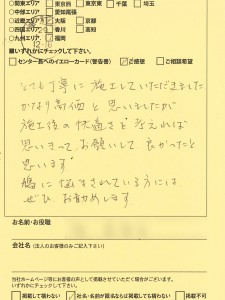 ○関東エリア □東京 □千葉 □埼玉
○中部エリア 愛知
○近畿エリア □大阪 □京都
○四国エリア □香川 □高知
○九州エリア 福岡
12-16
願いずれかにチェックして下さい。
□センター長へのイエローカード(警告書) ☑ご感想 □ご相談希望
とても丁寧に施工していただきました
かなり高価と思いましたが
施工後の快適さを考えれば
思いきってお願いして良かったと
思います
鳩に悩まされている方には
ぜひお勧めします
お名前・お役職
会社名 (法人のお客様のみご記入下さい)
当社ホームページ等にお客様の声として掲載させていただく場合がございます。
いずれかにチェックして下さい。
□掲載しても構わない ☑社名・名前が匿名ならば掲載しても構わない □掲載不可